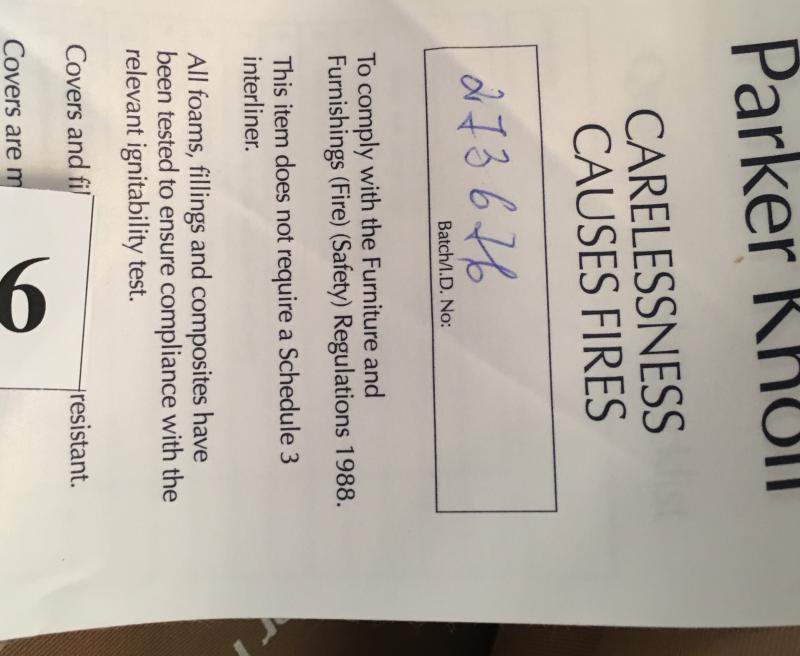 Parker Knoll
CARELESSNESS
CAUSES FIRES
273676
Batch/I.D. No:
To comply with the Furniture and
Furnishings (Fire) (Safety) Regulations 1988.
This item does not require a Schedule 3
interliner.
All foams, fillings and composites have
been tested to ensure compliance with the
relevant ignitability test.
Covers and fil resistant.
Covers are m
6